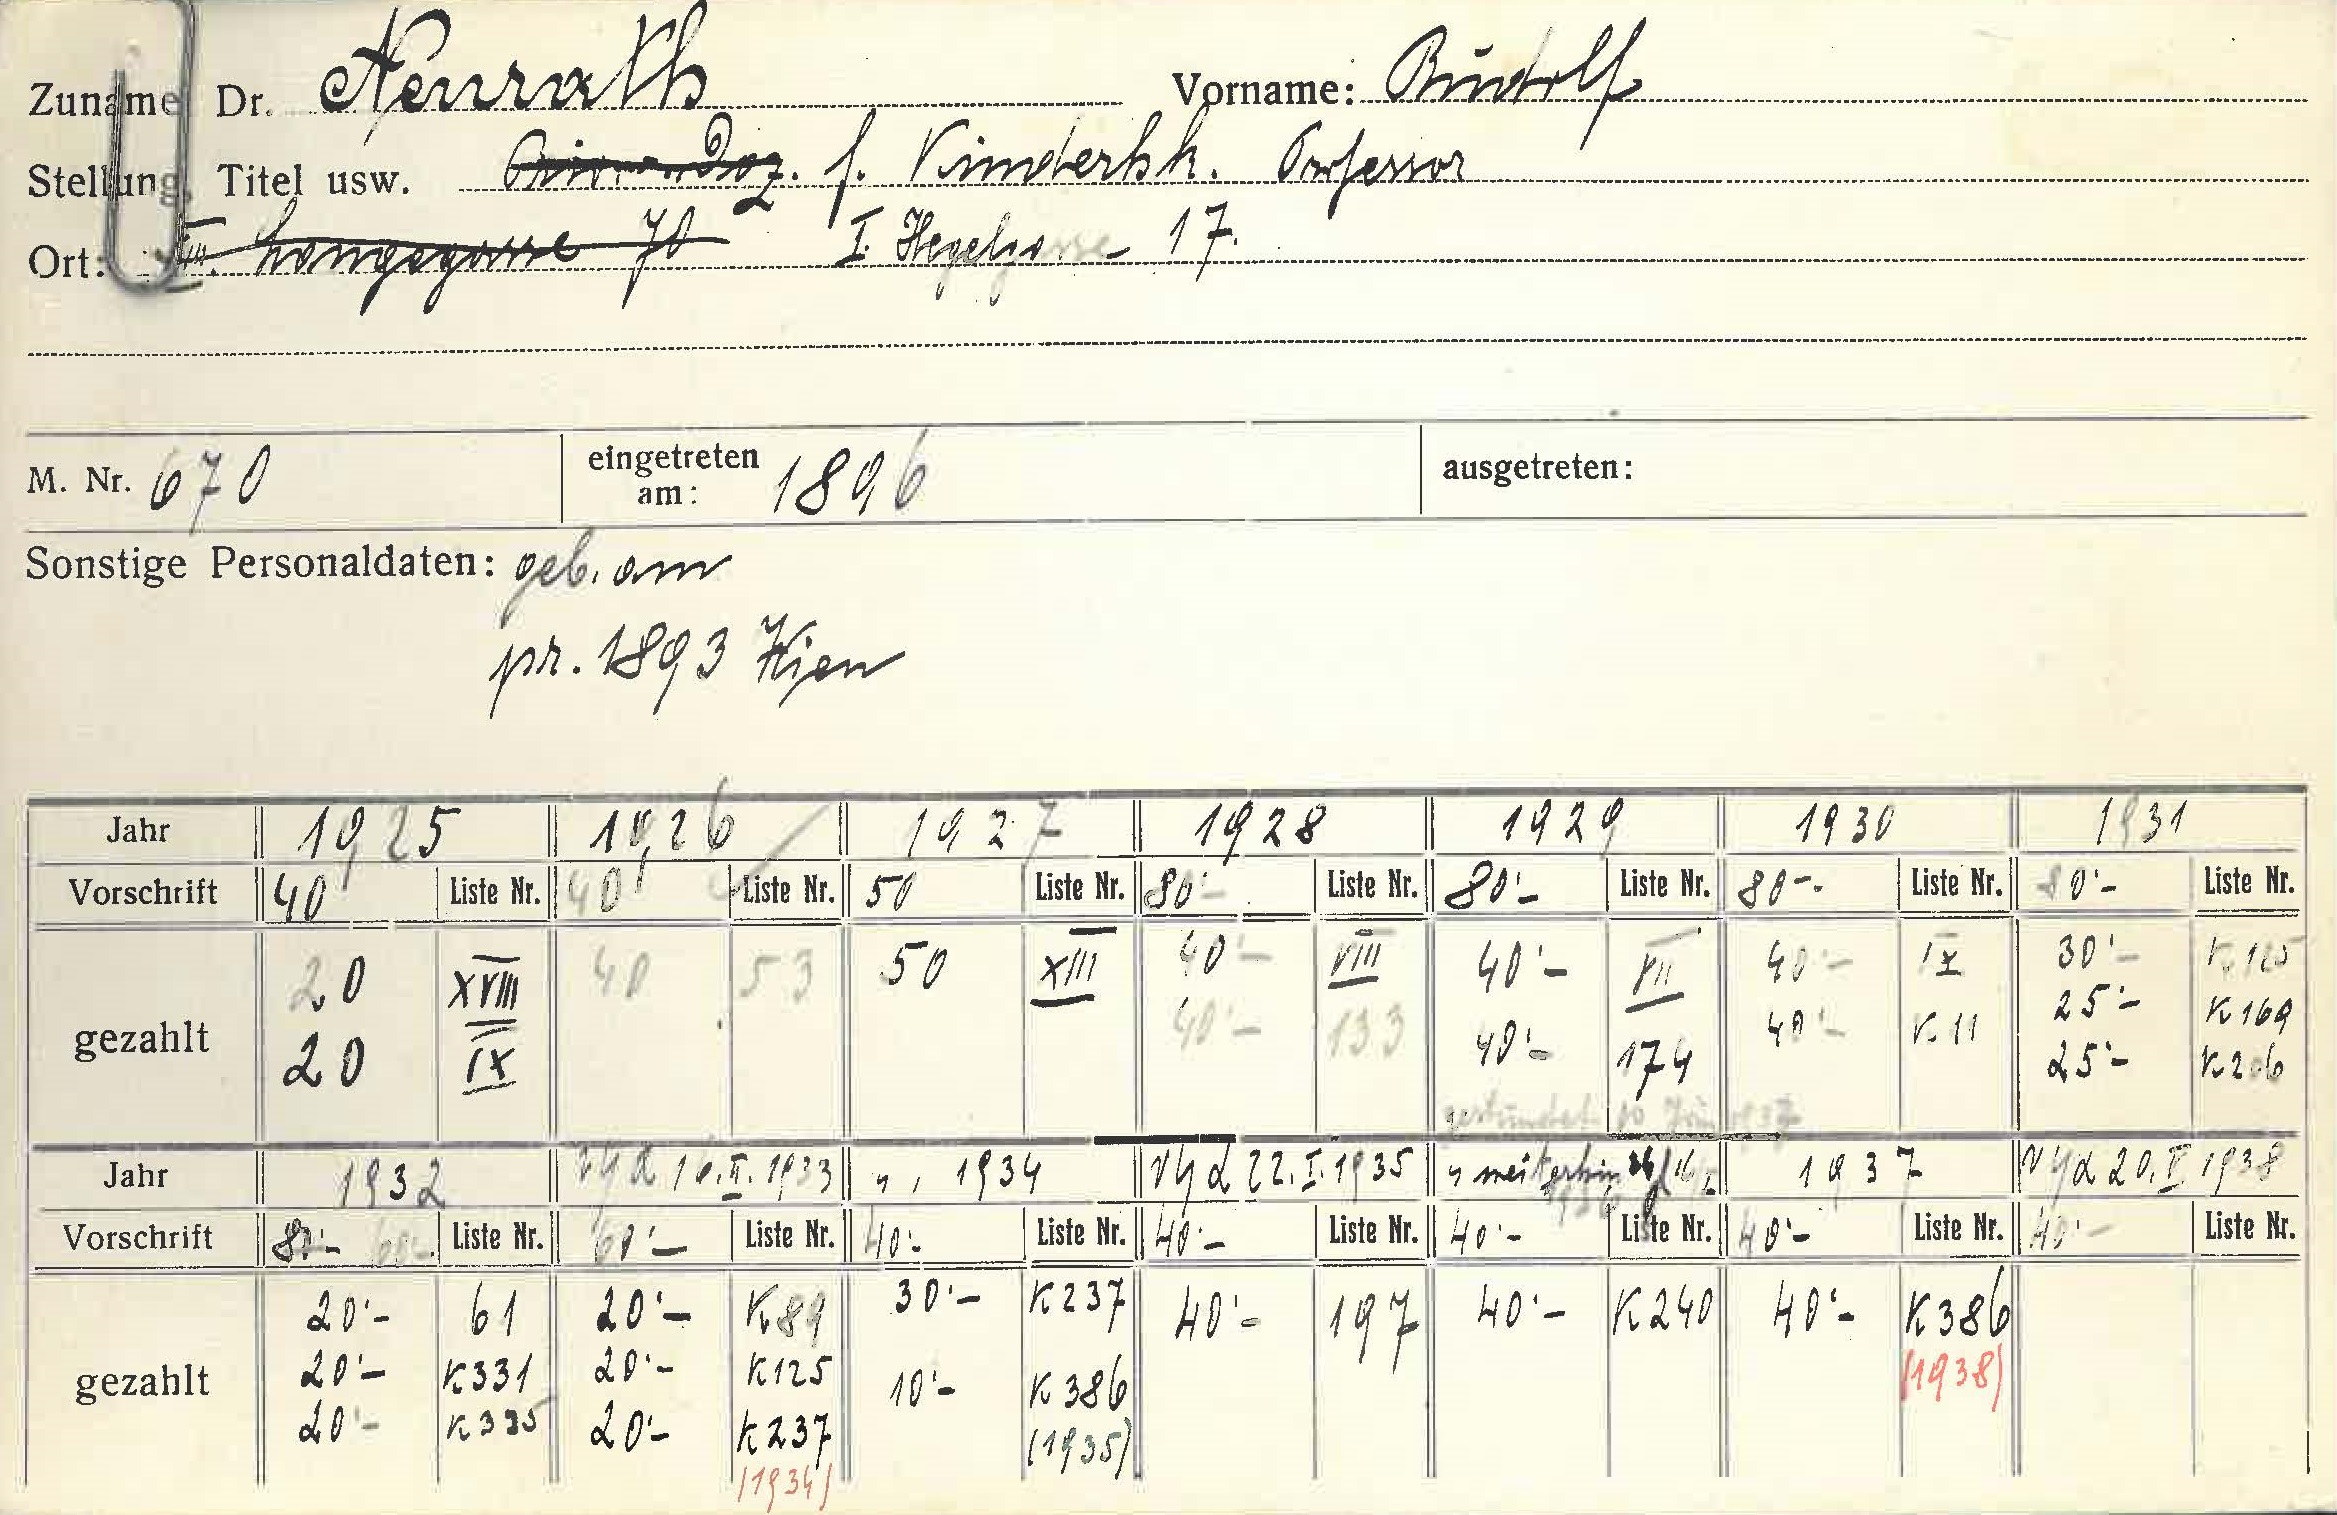 Zuname Dr. Neurath Vorname: Rudolf
Stellung, Titel usw. Priv. Doz. f. Kinderhk. Professor
Ort: VIII. Langegasse 70 I. Hegelgasse 17.
M. Nr. 670 eingetreten am: 1896 ausgetreten:
Sonstige Personaldaten: geb. am
pr. 1893 Wien
Jahr 1925 1926 1927 1928 1929 1930 1931
Vorschrift 40 Liste Nr. 40 Liste Nr. 50 Liste Nr. 80'- Liste Nr. 80'- Liste Nr. 80-. Liste Nr. 80'- Liste Nr.
gezahlt
20 XVIII 40 53 50 XIII 40'- VIII 40'- VII 40'- IX 30'- K 125
20 IX 40'- 133 40'- 174 40'- K 11 25'- K 169
25'- K 206
Jahr 1932 16.II. 1933 1934 22.I.1935 weiterhin 1937 20.I 1938
Vorschrift 80'- 60'- Liste Nr. 60'- Liste Nr. 40'- Liste Nr. 40'- Liste Nr. 40'- Liste Nr. 40'- Liste Nr. 40'- Liste Nr.
gezahlt
20'- 61 20'- K 89 30'- K 237 40'- 197 40'- K 240 40'- K 386
20'- K 331 20'- K 125 10'- K 386 (1938)
20'- K 335 20'- K 237 (1935)
(1934)